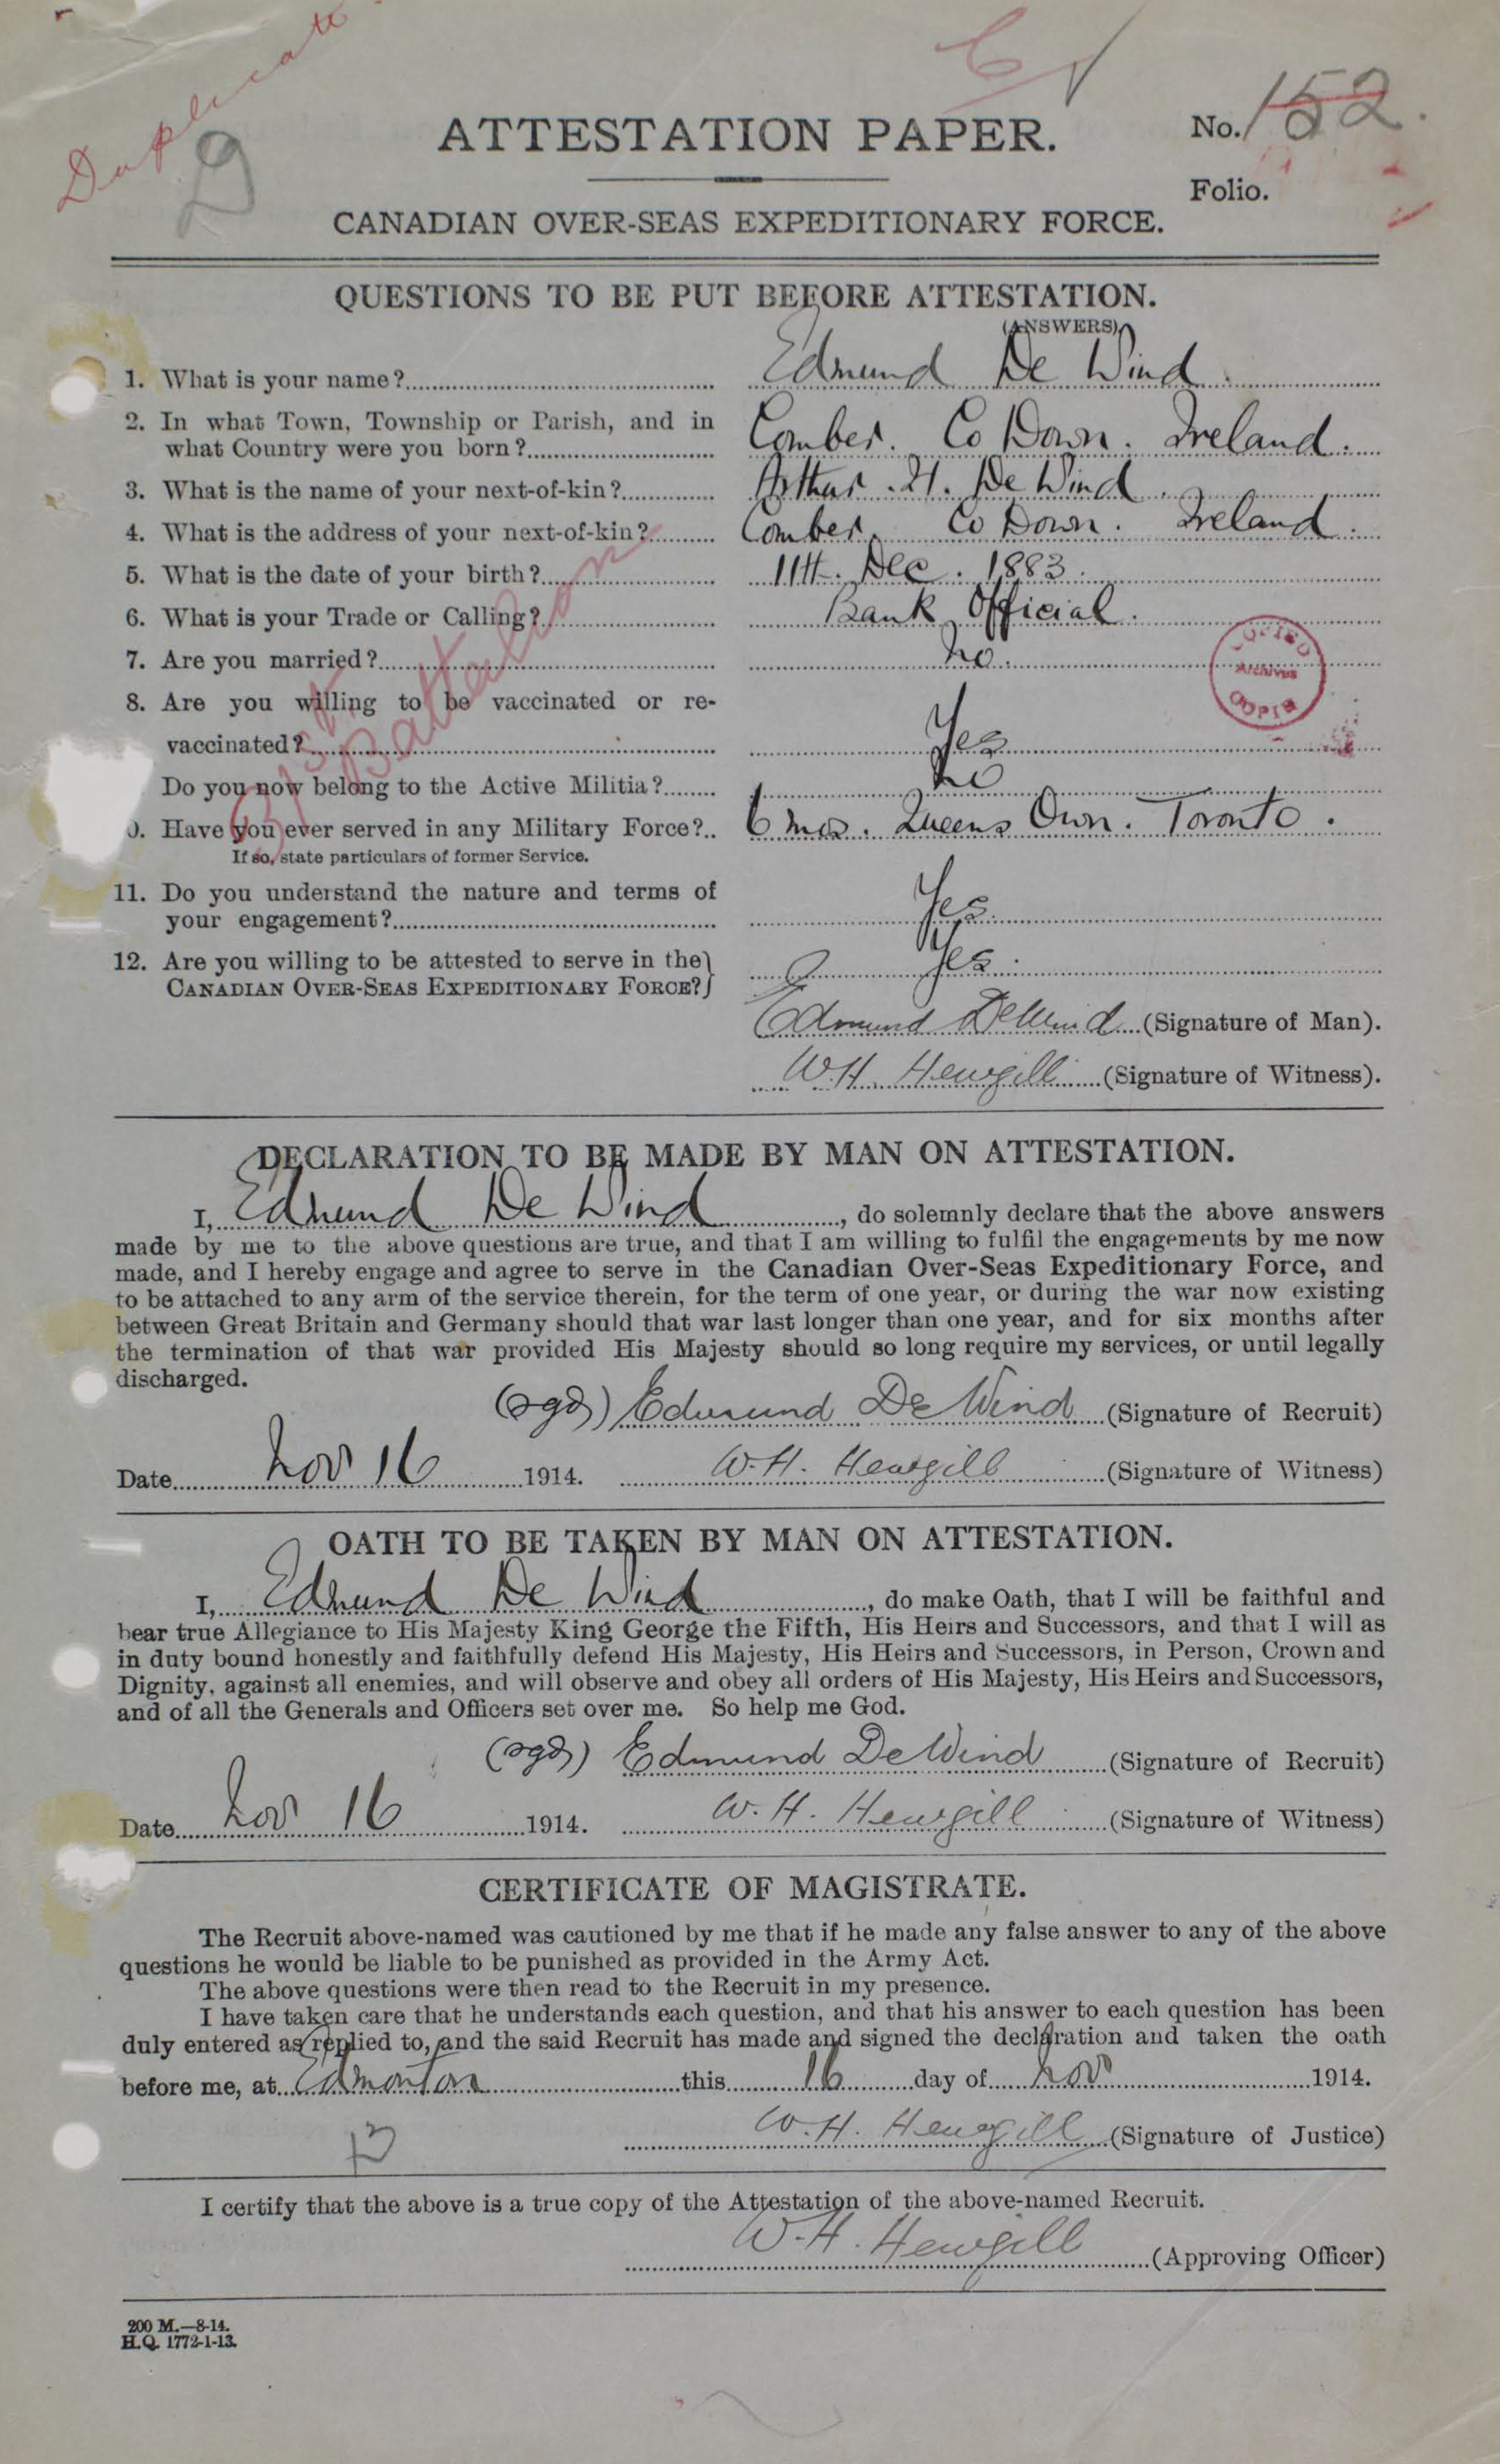 Duplicate
D
ATTESTATION PAPER.
No. 152.
Folio.
CANADIAN OVER-SEAS EXPEDITIONARY FORCE.
QUESTIONS TO BE PUT BEFORE ATTESTATION.
(ANSWERS)
1. What is your name? Edmund De Wind.
2. In what Town, Township or Parish, and in
what Country were you born? Comber. Co Down. Ireland.
3. What is the name of your next-of-kin? Arthur. H. De Wind.
4. What is the address of your next-of-kin? Comber. Co Down. Ireland.
5. What is the date of your birth? 11th. Dec. 1883.
6. What is your Trade or Calling? Bank Official.
7. Are you married? No.
COPIED
Archives
COPIE
8. Are you willing to be vaccinated or re-
vaccinated? Yes
Do you now belong to the Active Militia? No
0. Have you ever served in any Military Force? 6 mos. Queens Own. Toronto.
If so, state particulars of former Service.
31st Battalion
11. Do you understand the nature and terms of
your engagement? Yes.
12. Are you willing to be attested to serve in the
CANADIAN OVER-SEAS EXPEDITIONARY FORCE? Yes.
Edmund DeWind (Signature of Man).
W.H. Hewgill (Signature of Witness).
DECLARATION TO BE MADE BY MAN ON ATTESTATION.
I, Edmund De Wind, do solemnly declare that the above answers
made by me to the above questions are true, and that I am willing to fulfil the engagements by me now
made, and I hereby engage and agree to serve in the Canadian Over-Seas Expeditionary Force, and
to be attached to any arm of the service therein, for the term of one year, or during the war now existing
between Great Britain and Germany should that war last longer than one year, and for six months after
the termination of that war provided His Majesty should so long require my services, or until legally
discharged.
(sgd) Edmund De Wind (Signature of Recruit)
Date Nov 16 1914. W.H. Hewgill (Signature of Witness)
OATH TO BE TAKEN BY MAN ON ATTESTATION.
I, Edmund De Wind, do make Oath, that I will be faithful and
bear true Allegiance to His Majesty King George the Fifth, His Heirs and Successors, and that I will as
in duty bound honestly and faithfully defend His Majesty, His Heirs and Successors, in Person, Crown and
Dignity, against all enemies, and will observe and obey all orders of His Majesty, His Heirs and Successors,
and of all the Generals and Officers set over me. So help me God.
(sgd) Edmund DeWind (Signature of Recruit)
Date Nov 16 1914. W.H. Hewgill (Signature of Witness)
CERTIFICATE OF MAGISTRATE.
The Recruit above-named was cautioned by me that if he made any false answer to any of the above
questions he would be liable to be punished as provided in the Army Act.
The above questions were then read to the Recruit in my presence.
I have taken care that he understands each question, and that his answer to each question has been
duly entered as replied to, and the said Recruit has made and signed the declaration and taken the oath
before me, at Edmonton this 16 day of Nov 1914.
W.H. Hewgill (Signature of Justice)
I certify that the above is a true copy of the Attestation of the above-named Recruit.
W.H. Hewgill (Approving Officer)
200 M.—8-14.
H.Q. 1772-1-13.